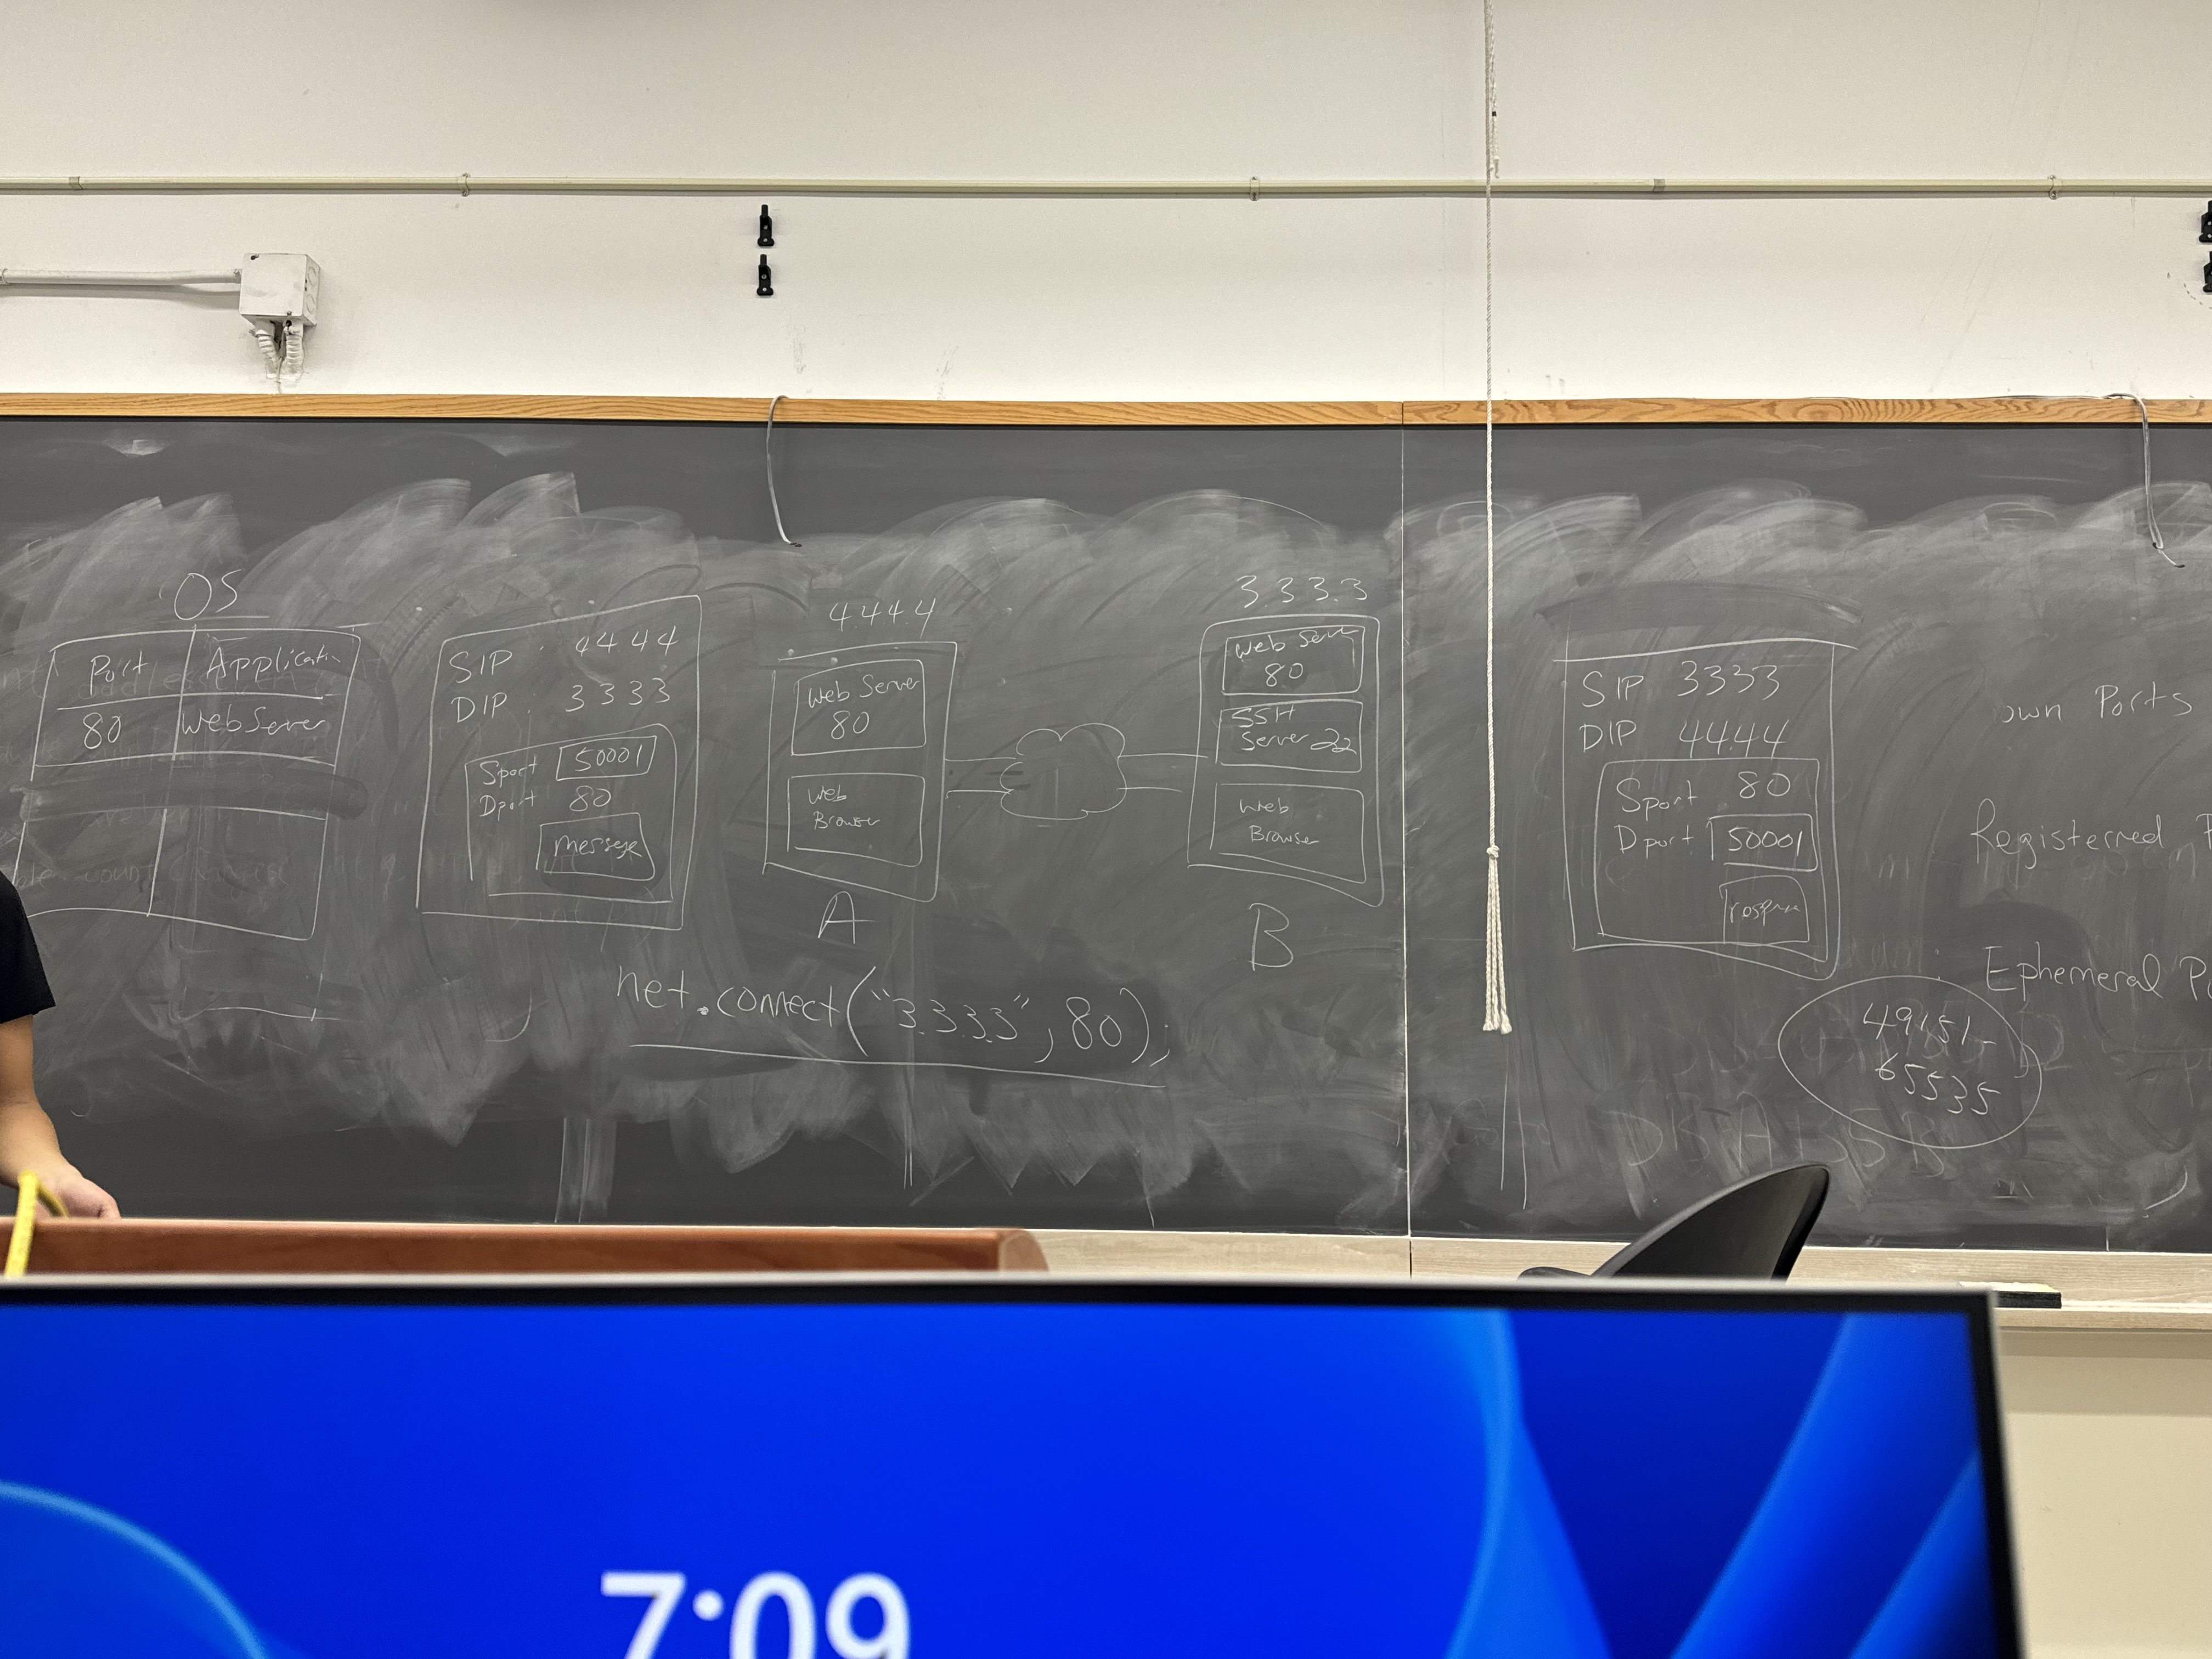 OS
Port Application
80 Web Server
SIP 4444
DIP 3333
Sport 50001
Dport 80
message
4.4.4.4
Web Server
80
Web
Browser
A
3.3.3.3
Web Serv
80
SSH
Server 22
Web
Browser
B
net.connect("3.3.3.3", 80);
SIP 3333
DIP 4444
Sport 80
Dport 50001
own Ports
Registerred P
Ephemeral Po
49151-
65535
7:09